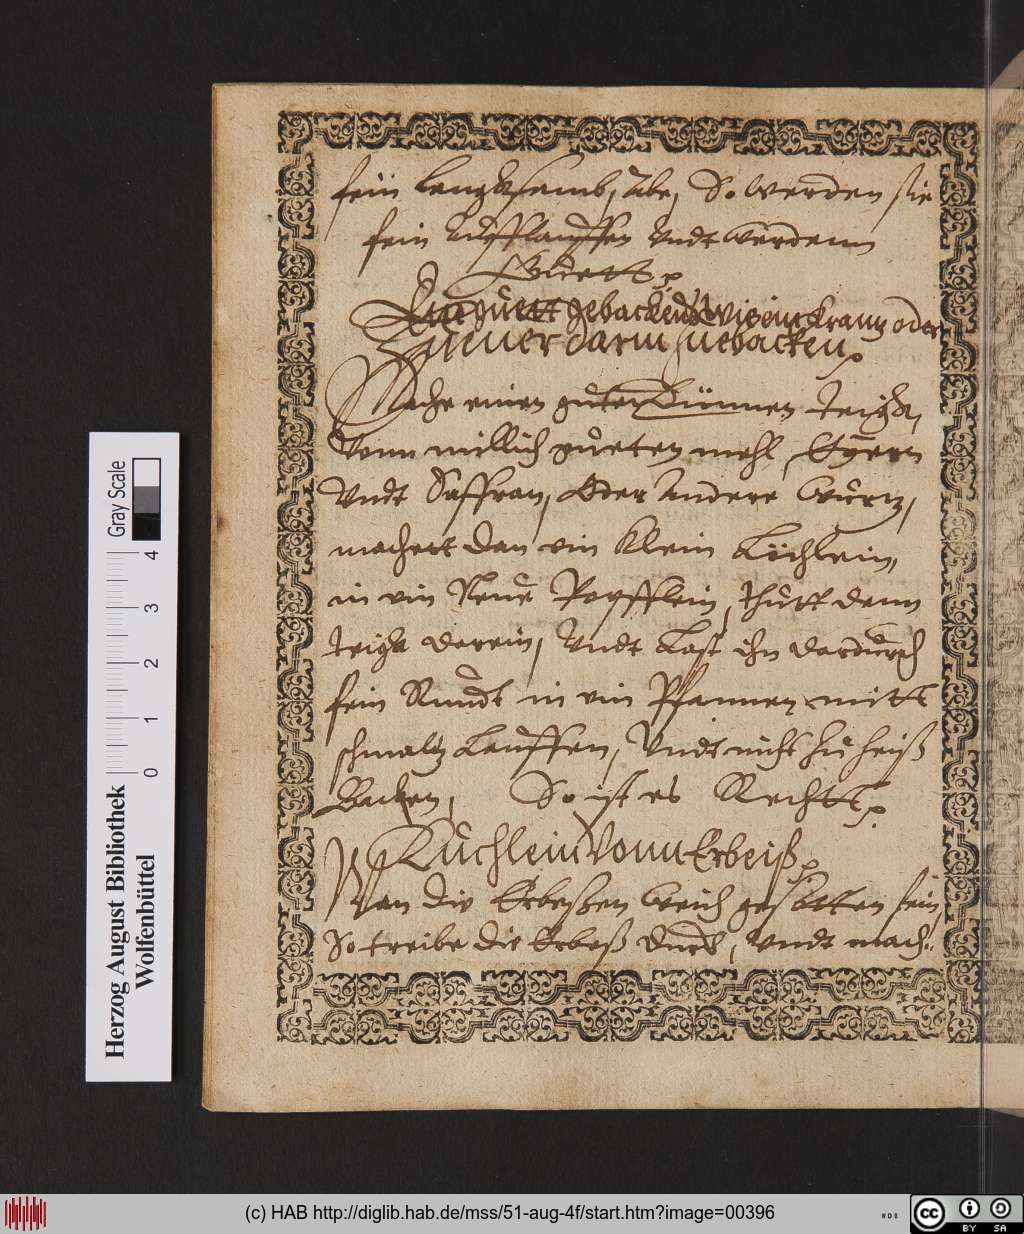 fein langksamb, abe, So werden sie
fein Aufflauffen Vndt werdenn
Guett
Ein guett gebackens Wie ein Krantz oder
Jnnerdarm zuebacken
Mache einen gueten Dünnen Teigk,
Vonn millich gueten mehl, Eyern
Vndt Saffran, Oder Andere Würtz,
machett dan ein klein Löchlein,
in ein Neue Pfefflein, thutt denn
teigk darein, Vndt Last ihn dardurch
fein Rundt in ein Pfannen mitt
schmaltz Lauffen, Vndt nicht zu heiß
Backen, So ist es Recht
Küchlein Vonn Erbeiß
Wan die Erbeßen weich gesotten sein,
So treibe die Erbeß durch, Vndt mach
Herzog August Bibliothek
Wolfenbüttel
Gray Scale
0 1 2 3 4
(c) HAB http://diglib.hab.de/mss/51-aug-4f/start.htm?image=00396
WDB
cc BY SA